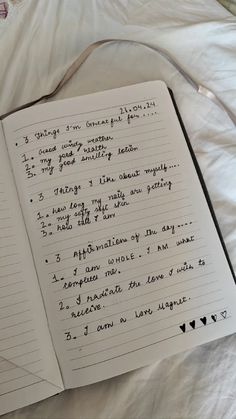 21.04.24
• 3 Things I'm Grateful for .....
1. Good windy weather
2. my good health
3. my good smelling lotion
• 3 Things I like about myself....
1. how long my nails are getting
2. my soft skin
3. how tall I am
• 3 Affirmations of the day .....
1. I am WHOLE. I AM what
complete me.
2. I radiate the love I wish to
receive.
3. I am a Love Magnet.